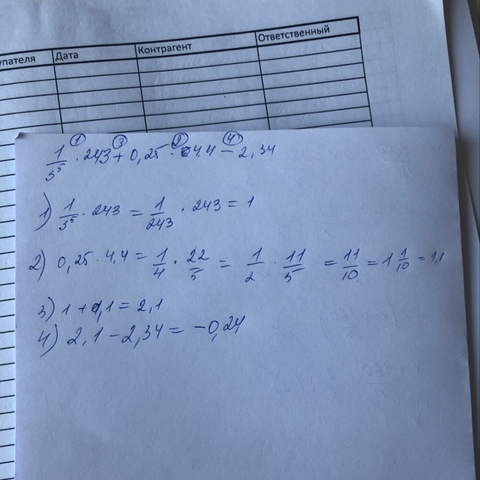 упателя Дата Контрагент Ответственный
① ③ ② ④
1/3⁵ · 243 + 0,25 · 4,4 − 2,34
1) 1/3⁵ · 243 = 1/243 · 243 = 1
2) 0,25 · 4,4 = 1/4 · 22/5 = 1/2 · 11/5 = 11/10 = 1 1/10 = 1,1
3) 1 + 1,1 = 2,1
4) 2,1 − 2,34 = −0,24